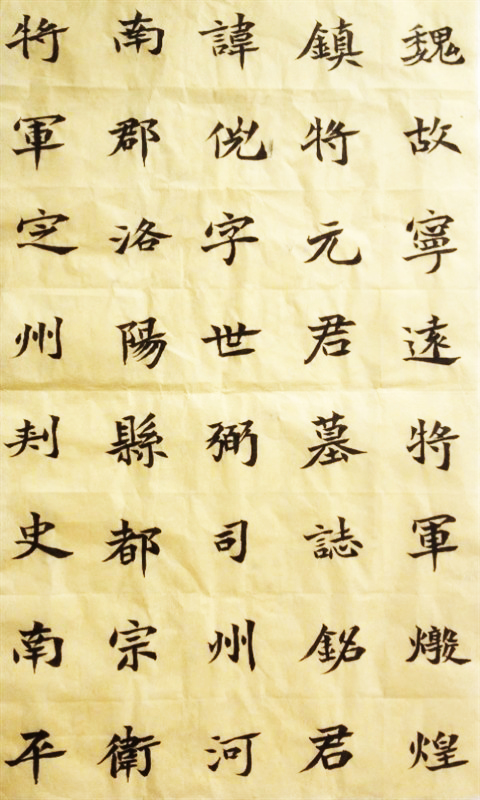 魏故寧遠將軍燉煌
鎮將元君墓誌銘君
諱倪字世弼司州河
南郡洛陽縣都宗衛
將軍㝎州刾史南平